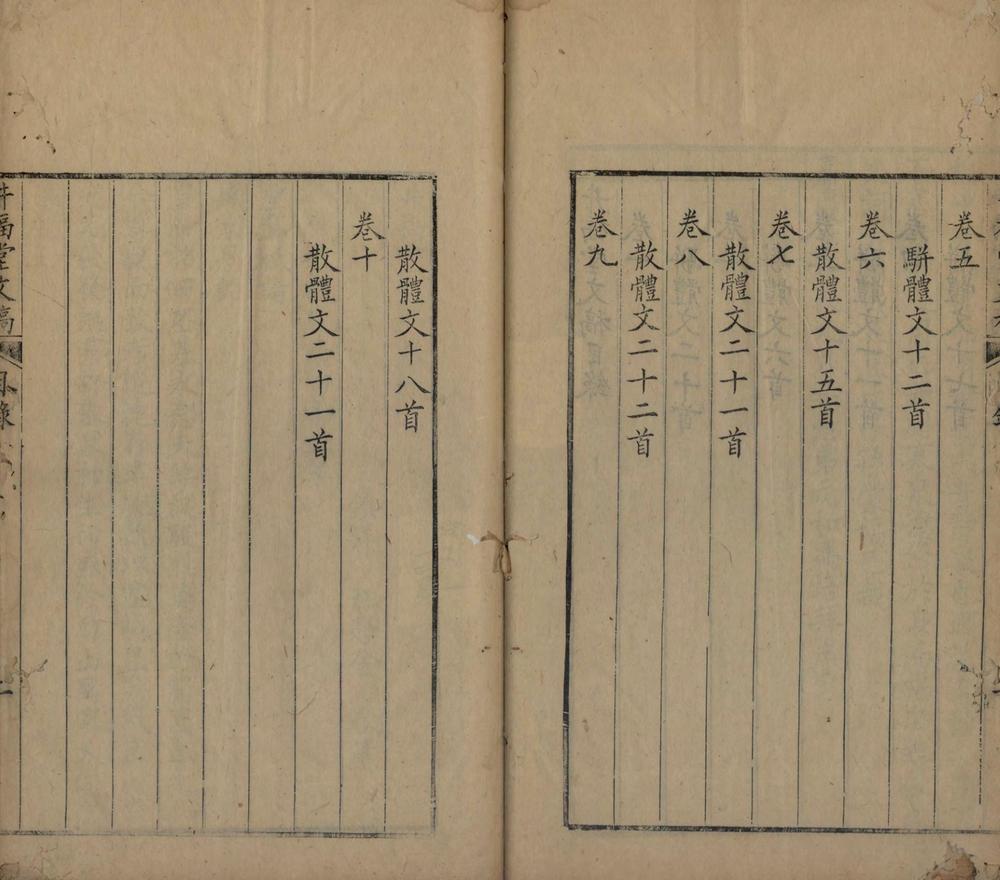 卷五
駢體文十二首
卷六
散體文十五首
卷七
散體文二十一首
卷八
散體文二十二首
卷九
散體文十八首
卷十
散體文二十一首
福堂文稿
目錄